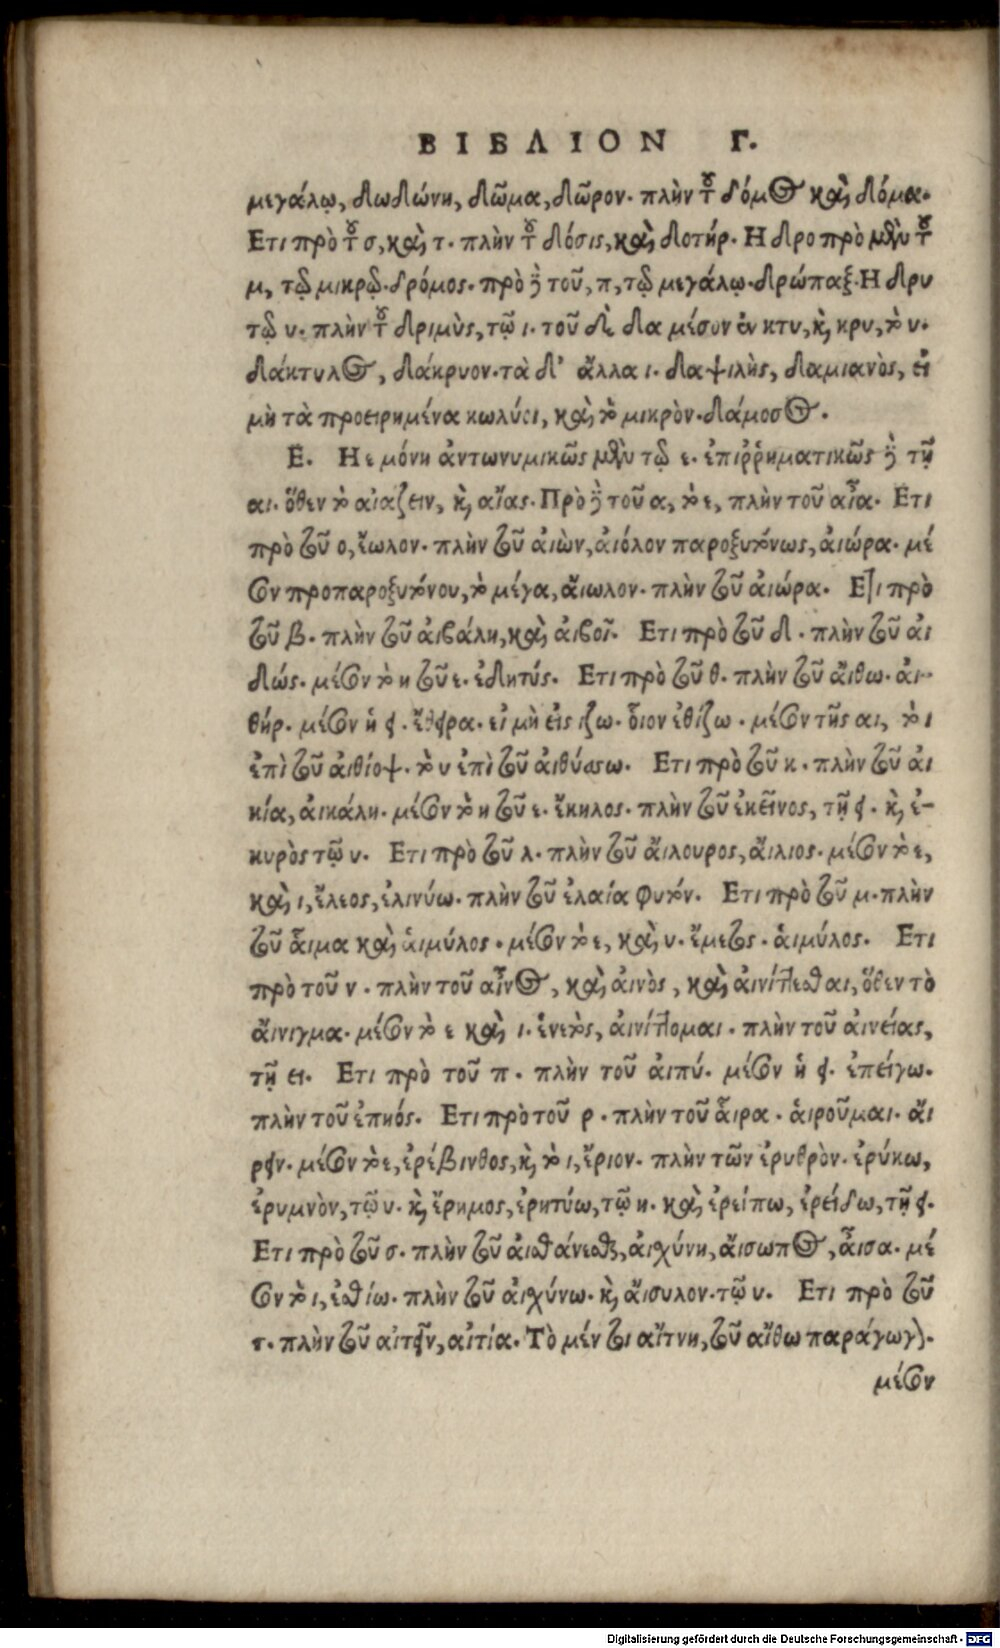 ΒΙΒΛΙΟΝ Γ.
μεγάλῳ, δωδώνη, δῶμα, δῶρον. πλὴν τοῦ δόμος καὶ δόμα.
Ετι πρὸ τοῦ σ, καὶ τ. πλὴν τοῦ δόσις, καὶ δοτήρ. Η δρο πρὸ μὲν τοῦ
μ, τῷ μικρῷ. δρόμος. πρὸ δὲ τοῦ, π, τῷ μεγάλῳ. δρώπαξ. Η δρυ
τῷ υ. πλὴν τοῦ δριμὺς, τῷ ι. τοῦ δὲ δα μέσον ἐν κτυ, καὶ κρυ, τὸ υ.
δάκτυλος, δάκρυον. τὰ δ' ἄλλα ι. δαψιλὴς, δαμιανὸς, εἰ
μὴ τὰ προειρημένα κωλύσι, καὶ τὸ μικρὸν. δάμοσος.
Ε. Η ε μόνη ἀντωνυμικῶς μὲν τῷ ε. ἐπιῤῥηματικῶς δὲ τῇ
αι. ὅθεν τὸ αἰαζειν, καὶ αἴας. Πρὸ δὲ τοῦ α, τὸ ε, πλὴν τοῦ αἶα. Ετι
πρὸ τοῦ ο, ἕωλον. πλὴν τοῦ ἀιὼν, ἀιόλον παροξυτόνως, ἀιώρα. μέ
τον προπαροξυτόνου, τὸ μέγα, ἄιωλον. πλὴν τοῦ ἀιώρα. Ετι πρὸ
τοῦ β. πλὴν τοῦ ἀιβάλη, καὶ ἀιβοῖ. Ετι πρὸ τοῦ δ. πλὴν τοῦ ἀι
δώς. μέτον τὸ η τοῦ ε. ἐδητύς. Ετι πρὸ τοῦ θ. πλὴν τοῦ ἄιθω. ἀι-
θήρ. μέτον ἡ ει. ἔθειρα. εἰ μὴ εἰς ιζω. οἷον ἐθίζω. μέτον τῆς αι, τὸ ι
ἐπὶ τοῦ ἀιθίοψ. τὸ υ ἐπὶ τοῦ ἀιθύσσω. Ετι πρὸ τοῦ κ. πλὴν τοῦ ἀι
κία, ἀικάλη. μέτον τὸ η τοῦ ε. ἕκηλος. πλὴν τοῦ ἐκεῖνος, τῇ ει. καὶ ἑ-
κυρὸς τῷ υ. Ετι πρὸ τοῦ λ. πλὴν τοῦ ἄιλουρος, ἄιλιος. μέτον τὸ ε,
καὶ ι, ἔλεος, ἐλινύω. πλὴν τοῦ ἐλαία φυτόν. Ετι πρὸ τοῦ μ. πλὴν
τοῦ ἇιμα καὶ ἁιμύλος. μέτον τὸ ε, καὶ υ. ἔμετος. ἁιμύλος. Ετι
πρὸ τοῦ ν. πλὴν τοῦ αἶνος, καὶ ἀινὸς, καὶ ἀινίττεσθαι, ὅθεν τὸ
ἄινιγμα. μέτον τὸ ε καὶ ι. ἑνετὸς, ἀινίττομαι. πλὴν τοῦ ἀινείας,
τῇ ει. Ετι πρὸ τοῦ π. πλὴν τοῦ ἀιπύ. μέτον ἡ ει. ἐπείγω.
πλὴν τοῦ ἐπηός. Ετι πρὸ τοῦ ρ. πλὴν τοῦ ἇιρα. ἁιροῦμαι. ἄι
ρειν. μέτον τὸ ε, ἐρέβινθος, καὶ τὸ ι, ἔριον. πλὴν τῶν ἐρυθρὸν. ἐρύκω,
ἐρυμνὸν, τῷ υ. καὶ ἔρημος, ἐρητύω, τῷ η. καὶ ἐρείπω, ἐρείδω, τῇ ει.
Ετι πρὸ τοῦ σ. πλὴν τοῦ ἀισθάνεσθαι, ἀισχύνη, ἄισωπος, ἆισα. μέ
τον τὸ ι, ἐσθίω. πλὴν τοῦ ἀισχύνω. καὶ ἄισυλον. τῷ υ. Ετι πρὸ τοῦ
τ. πλὴν τοῦ αἰτεῖν, αἰτία. Τὸ μέν τοι αἴτνη, τοῦ αἴθω παράγωγον.
μέτον
Digitalisierung gefördert durch die Deutsche Forschungsgemeinschaft - DFG